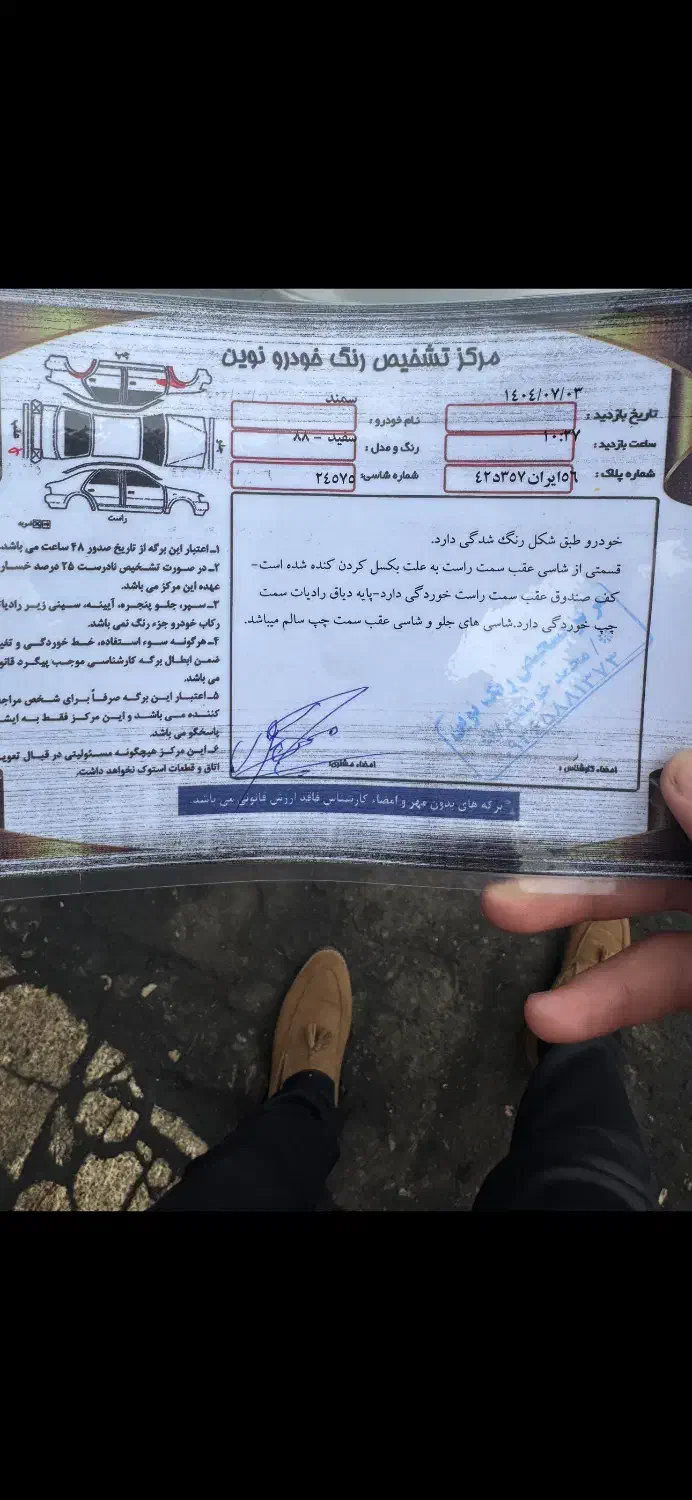 مرکز تشخیص رنگ خودرو نوین
چپ
راست
جلو
عقب
ضربه
تاریخ بازدید : ۱۴۰۴/۰۷/۰۳
نام خودرو : سمند
ساعت بازدید : ۱۰:۲۷
رنگ و مدل : سفید - ۸۸
شماره پلاک : ۵۶ایران ۳۵۷د۴۲
شماره شاسی: ۲۴۵۷۵
خودرو طبق شکل رنگ شدگی دارد.
قسمتی از شاسی عقب سمت راست به علت بکسل کردن کنده شده است-
کف صندوق عقب سمت راست خوردگی دارد-پایه دیاق رادیات سمت
چپ خوردگی دارد.شاسی های جلو و شاسی عقب سمت چپ سالم میباشد.
امضاء کارشناس :
امضاء مشتری:
۱ـ اعتبار این برگه از تاریخ صدور ۴۸ ساعت می باشد.
۲ـ در صورت تشخیص نادرست ۲۵ درصد
عهده این مرکز می باشد.
۳ـ سپر، جلو پنجره، آیینه، سینی زیر
رکاب خودرو جزء رنگ نمی باشد.
۴ـ هرگونه سوء استفاده، خط خوردگی و
ضمن ابطال برگه کارشناسی موجب پیگرد
می باشد.
۵ـ اعتبار این برگه صرفاً برای شخص
کننده می باشد و این مرکز فقط به
پاسخگو می باشد.
۶ـ این مرکز هیچگونه مسئولیتی در قبال
اتاق و قطعات استوک نخواهد داشت.
برگه های بدون مهر و امضاء کارشناس فاقد ارزش قانونی می باشد